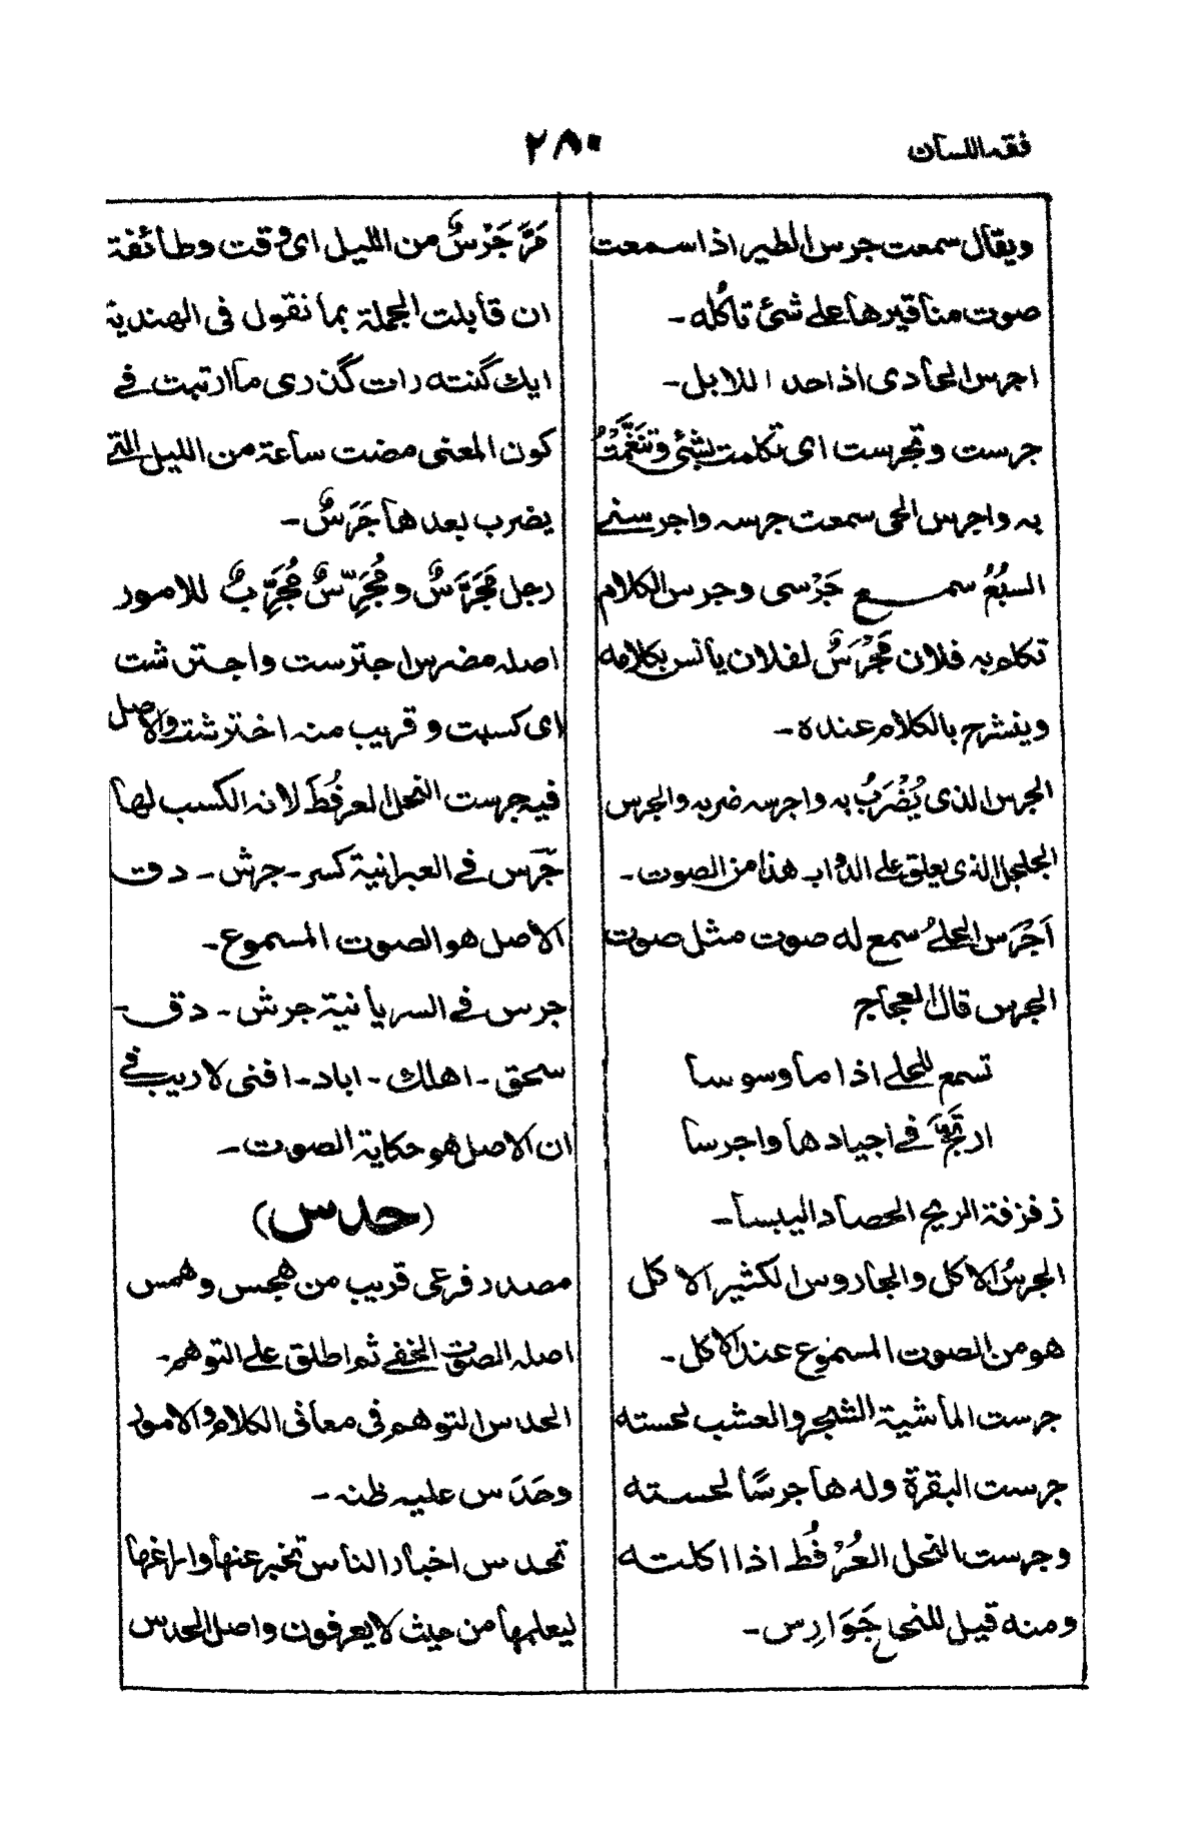 فقه اللسان
٢٨٠
ويقال سمعت جرس الطير اذا سمعت
صوت مناقيرها على شئ تاكُله ـ
اجرس الحادى اذا حدا للابل ـ
جرست وتجرست اى تكلمت بشئ وتَنَغَّمْتُ
به واجرس الحى سمعت جرسه واجرسنى
السبُعُ سمع جَرْسى وجرس الكلام
تكلم به فلان مَجْرَسٌ لفلان يانس بكلامه
وينشرح بالكلام عنده ـ
الجرس الذى يُضْرَبُ به واجرسه ضربه والجرس
الجلجل الذى يعلق على الدواب هذا من الصوت ـ
اَجْرَس الحلىُ سمع له صوت مثل صوت
الجرس قال العجاج
تسمع للحلى اذا ما وسوسا
ارتَجَّ فى اجيادها واجرسا
زفزفة الريح الحصاد اليبسا ـ
الجرسُ الاكل والجاروس الكثير الاكل
هو من الصوت المسموع عند الاكل ـ
جرست الماشية الشجر والعشب لحسته
جرست البقرة ولدها جرسًا لحسته
وجرست النحل العُرْفُط اذا اكلته
ومنه قيل للنحل جَوَارِس ـ
مَرَّ جَرْسٌ من الليل اى وقت وطائفة
ان قابلت الجملة بما نقول فى الهندية
ايك گنته رات گذرى ما ارتبت فى
كون المعنى مضت ساعة من الليل التى
يضرب بعدها جَرَسٌ ـ
رجل مُجَرَّسٌ ومُجَرِّسٌ مُجَرِّبٌ للامور
اصله مضرس اجترست واجترشت
اى كسبت وقريب منه اخترشت والاصل
فيه جرست النحل العرفُطَ لانه الكسب لها
جَرَس فى العبرانية كسر ـ جرش ـ دق
الاصل هو الصوت المسموع ـ
جرس فى السريانية جرش ـ دق ـ
سحق ـ اهلك ـ اباد ـ افنى لاريب فى
ان الاصل هو حكاية الصوت ـ
(حدس)
مصدر فرعى قريب من هجس وهمس
اصله الصوت الخفى ثم اطلق على التوهم ـ
الحدس التوهم فى معانى الكلام والامور
وحَدَس عليه ظنه ـ
تحدس اخبار الناس تخبر عنها واراغها
ليعلمها من حيث لا يعرفون واصل الحدس